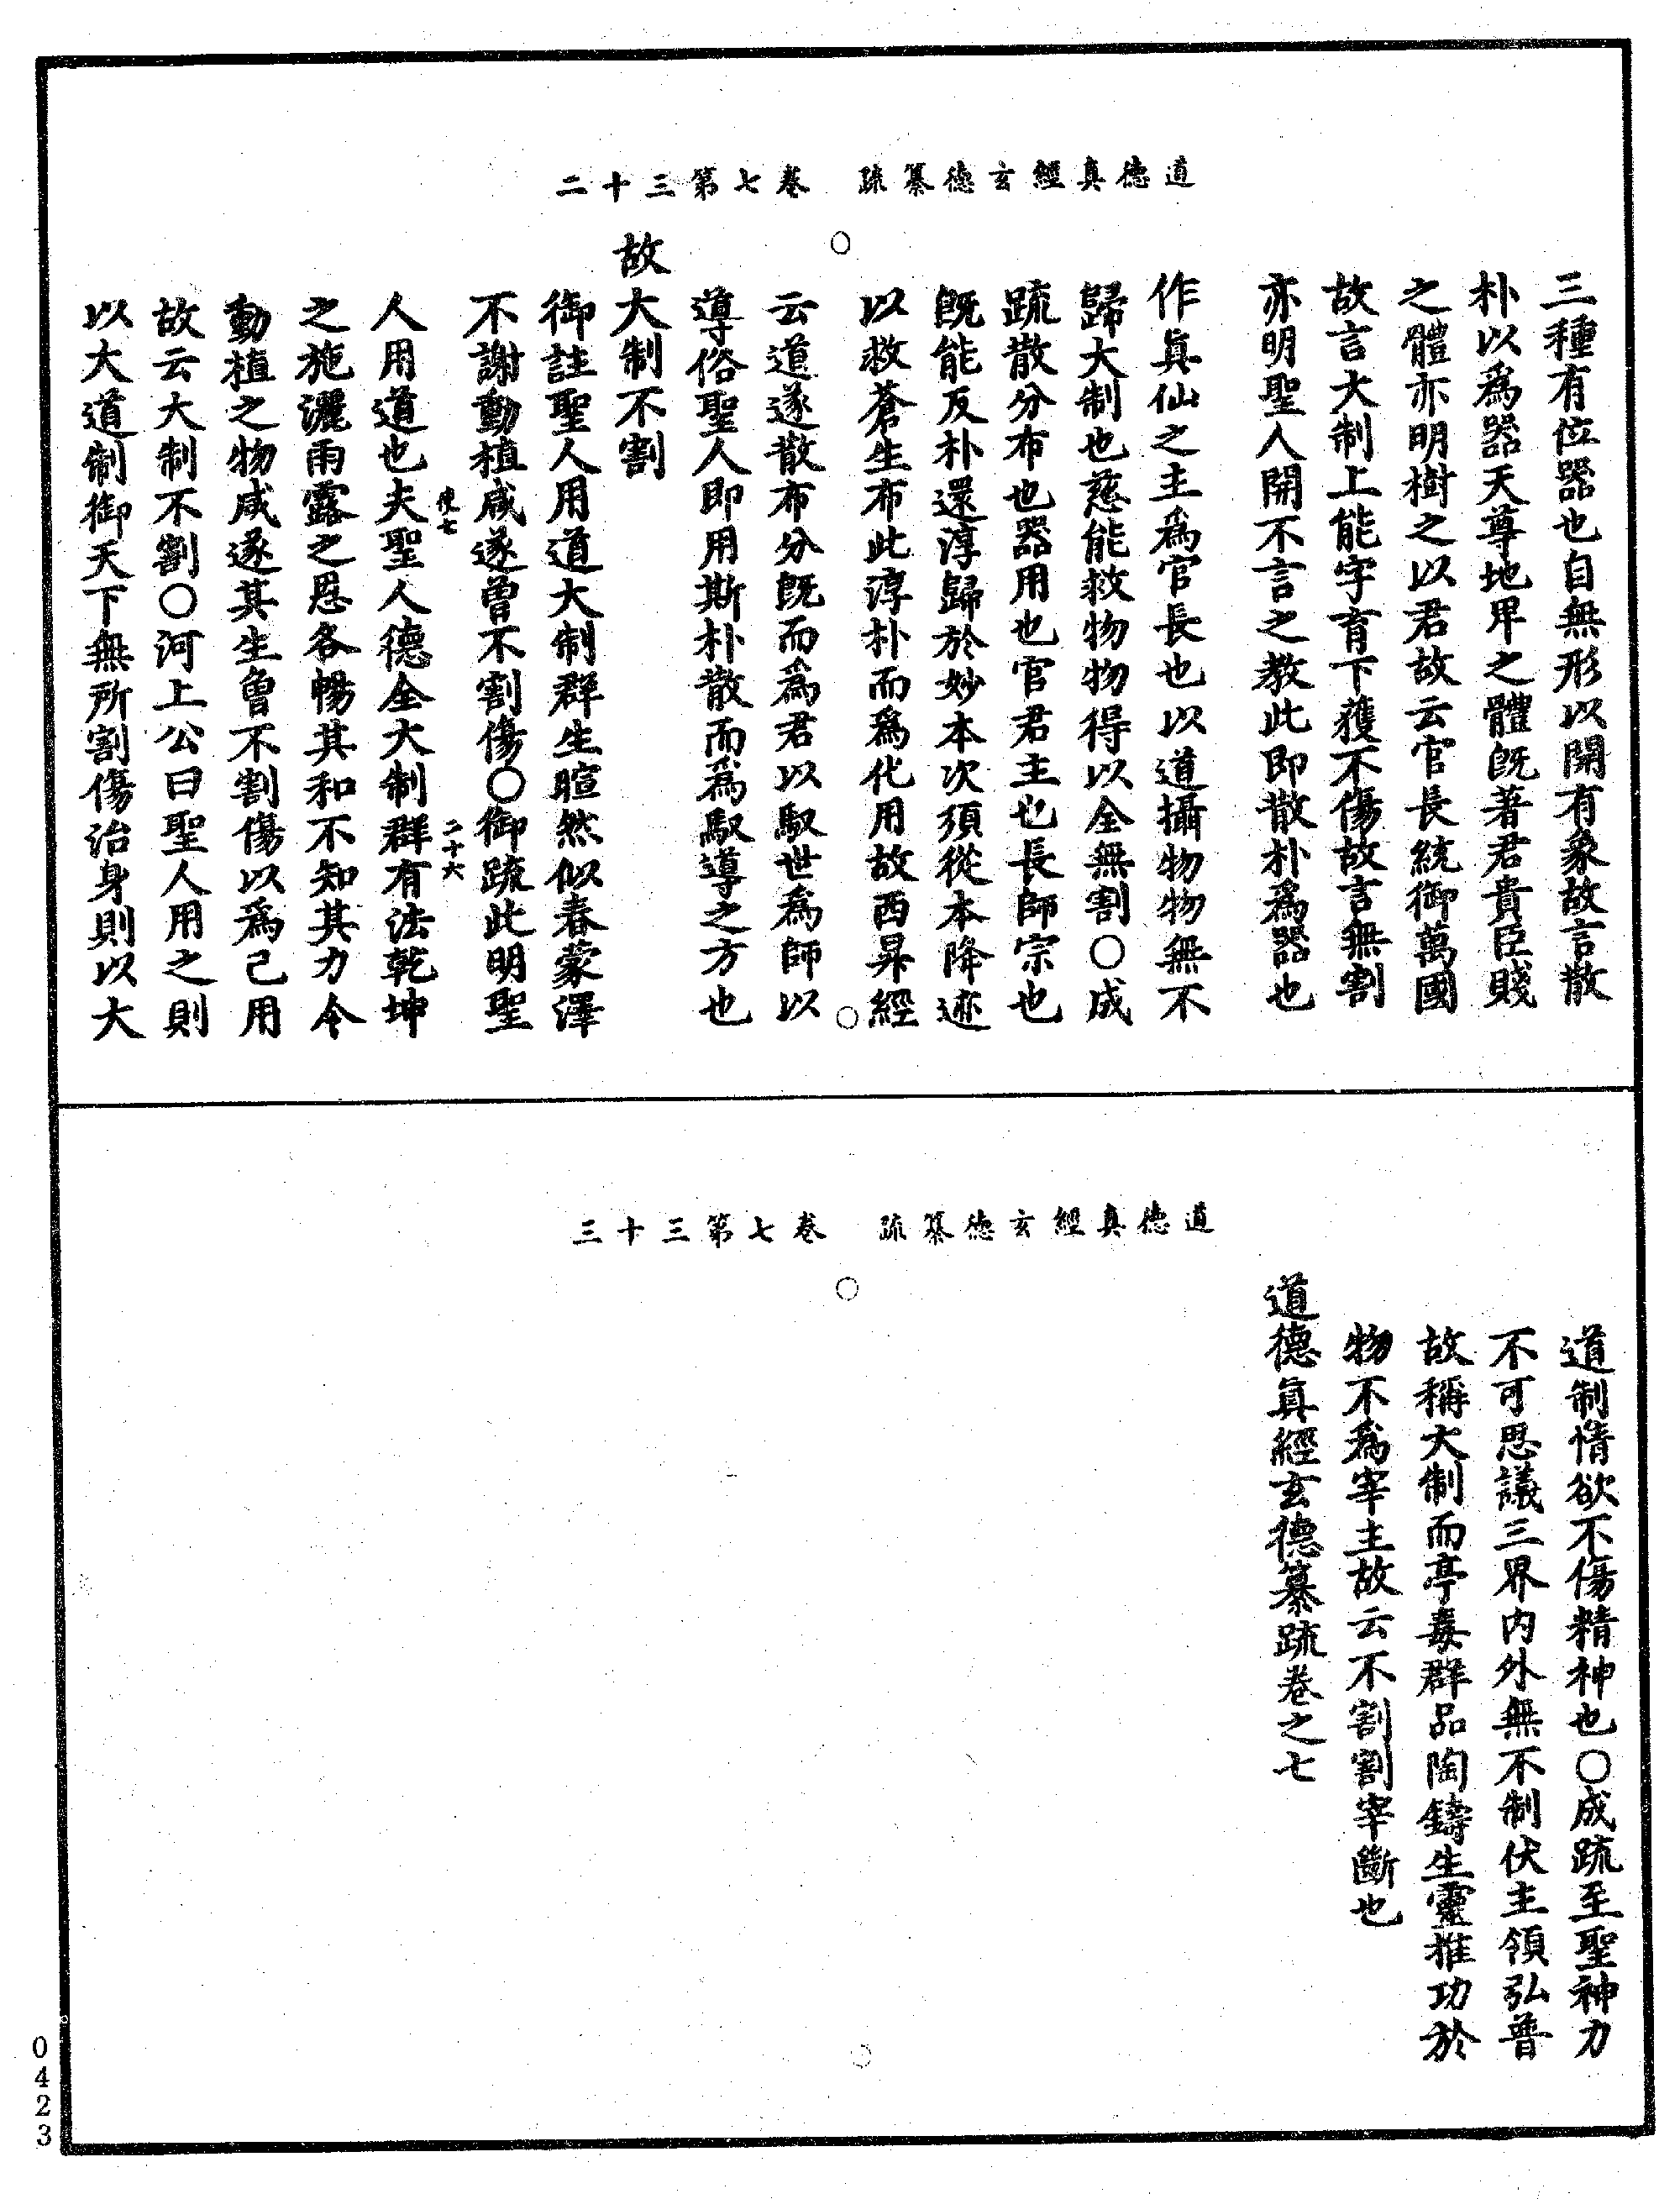 道德真經玄德纂疏　卷七第三十二
三種有位器也自無形以開有象故言散
朴以為器天尊地卑之體既著君貴臣賤
之體亦明樹之以君故云官長統御萬國
故言大制上能字育下獲不傷故言無割
亦明聖人開不言之教此即散朴為器也
作真仙之主為官長也以道攝物物無不
歸大制也慈能救物物得以全無割〇成
疏散分布也器用也官君主也長師宗也
既能反朴還淳歸於妙本次須從本降迹
以救蒼生布此淳朴而為代用故西昇經
云道遂散布分既而為君以馭世為師以
導俗聖人即用斯朴散而為馭導之方也
故大制不割
御註聖人用道大制群生暄然似春蒙澤
不謝動植咸遂曾不割傷〇御疏此明聖
使七　二十六
人用道也夫聖人德全大制群有法乾坤
之施灑雨露之恩各暢其和不知其力令
動植之物咸遂其生曾不割傷以為己用
故云大制不割〇河上公曰聖人用之則
以大道制御天下無所割傷治身則以大
道德真經玄德纂疏　卷七第三十三
道制情欲不傷精神也〇成疏至聖神力
不可思議三界內外無不制伏主領弘普
故稱大制而亭毒群品陶鑄生靈推功於
物不為宰主故云不割割宰斷也
道德真經玄德纂疏卷之七
0423